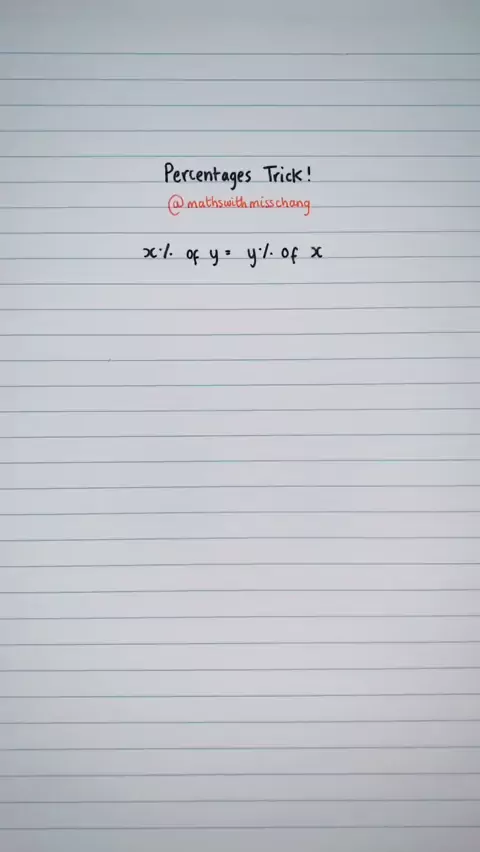 Percentages Trick!
@mathswithmisschang
x% of y = y% of x